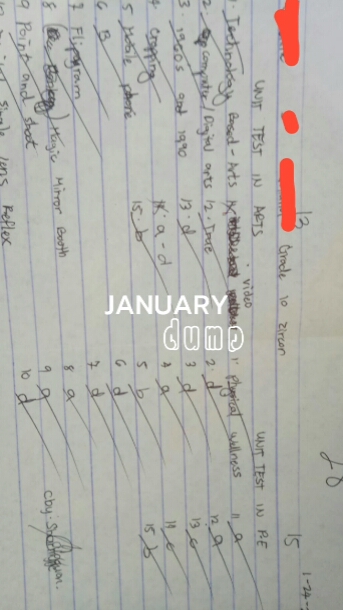 Grade 10 zircon
13
UNIT TEST IN ARTS
1. Technology Based - Arts
2. computer / Digital arts
3. 1960s and 1990
4. Cropping
5. Mobile phone
6. B
7. Flipagram
8. Magic Mirror Booth
9. Point and shoot
single lens Reflex
video
12. True
13. d
14. a - d
15. b
JANUARY
dump
28
15
1-24-
UNIT TEST IN P.E
1. Physical wellness
2. d
3. d
4. a
5. b
6. d
7. d
8. a
9. a
10. d
11. a
12. a
13. c
14. c
15. b
cby: